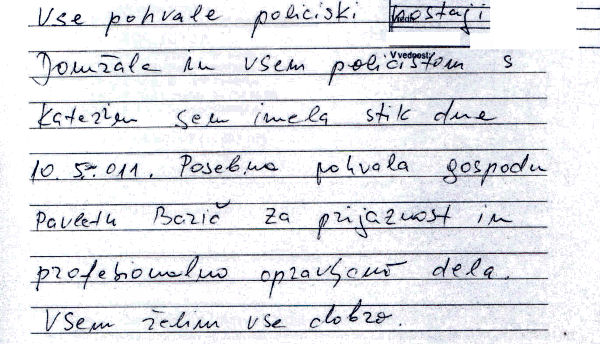 Vse pohvale policiski postaji
Domžala in vsem policistom s
katerim sem imela stik dne
10. 5. 011. Posebna pohvala gospodu
Pavletu Barič za prijaznost in
profesionalno opravljano dela.
Vsem želim vse dobro.
V vednost: